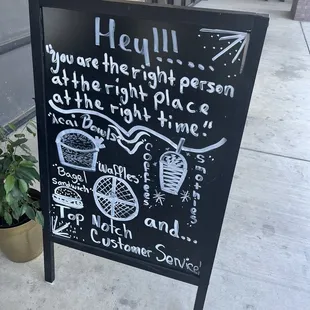 Hey!!!
"you are the right person
at the right place
at the right time."
Acai Bowls
Waffles
Coffees
Smothies
Bagel
Sandwich
and...
Top Notch
Customer Service!